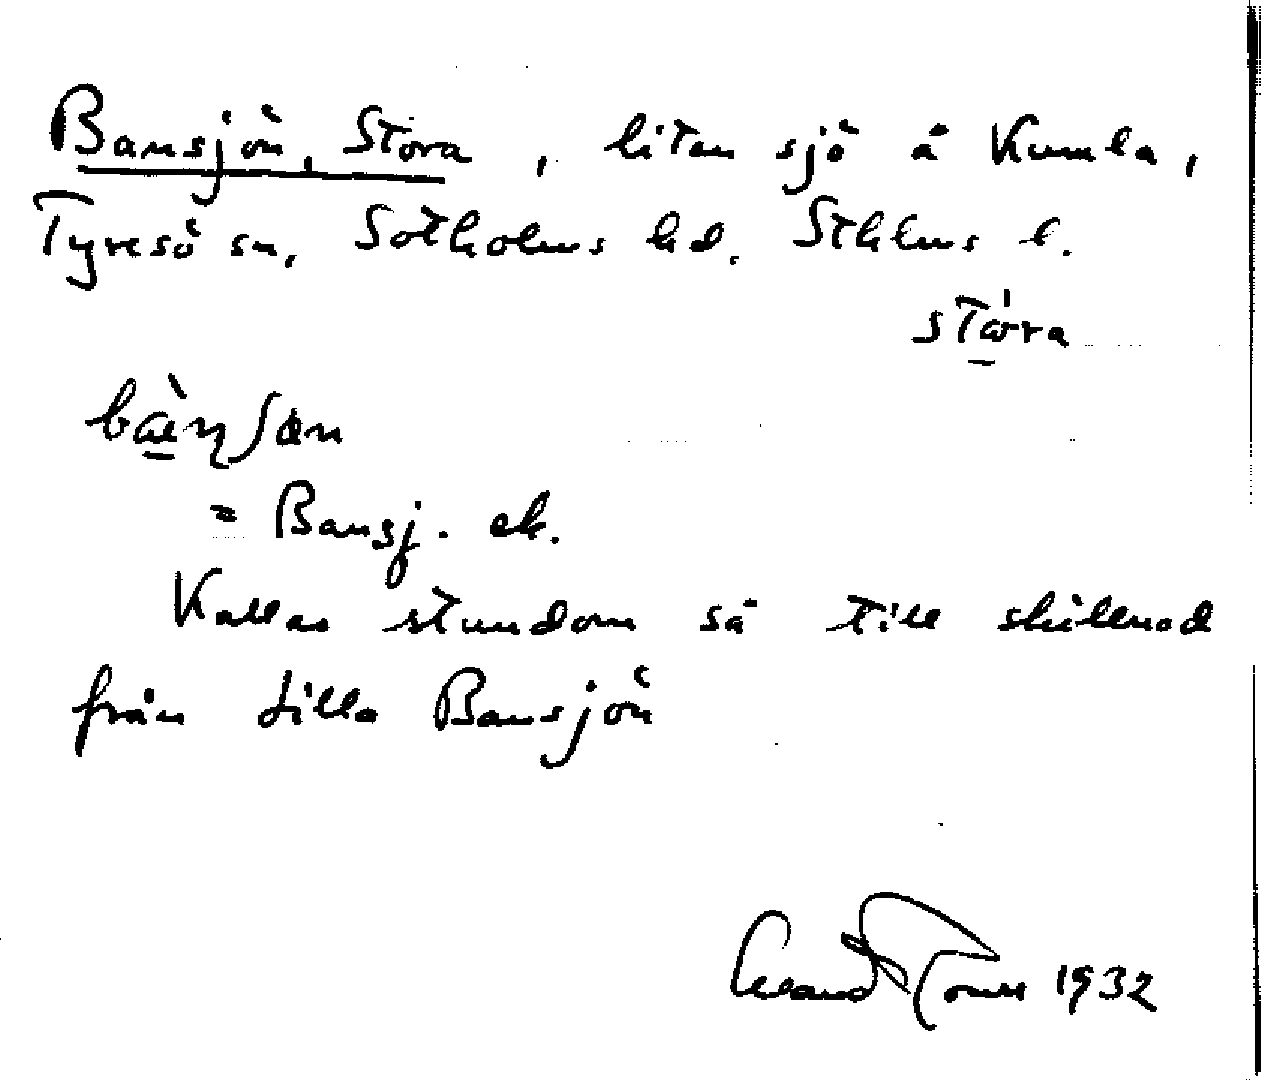 Bansjön, Stora, liten sjö å Kumla,
Tyresö sn, Sotholms hd. Sthlms l.
= Bansj. ek.
Kallas stundom så till skillnad
från Lilla Bansjön
1932